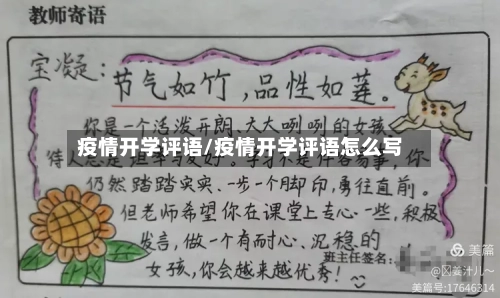 教师寄语
宝凝：节气如竹，品性如莲。
你是一个活泼开朗、大大咧咧的女孩，
疫情开学评语/疫情开学评语怎么写
待人 你
仍然踏踏实实、一步一个脚印，勇往直前。
但老师希望你在课堂上专心一些，积极
发言，做一个有耐心、沉稳的
女孩，你会越来越优秀！
班主任签名：
美篇
@囧荟汁儿~
美篇号:17646314